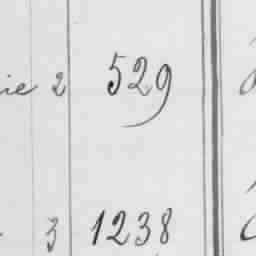 ie 2 529
3 1238